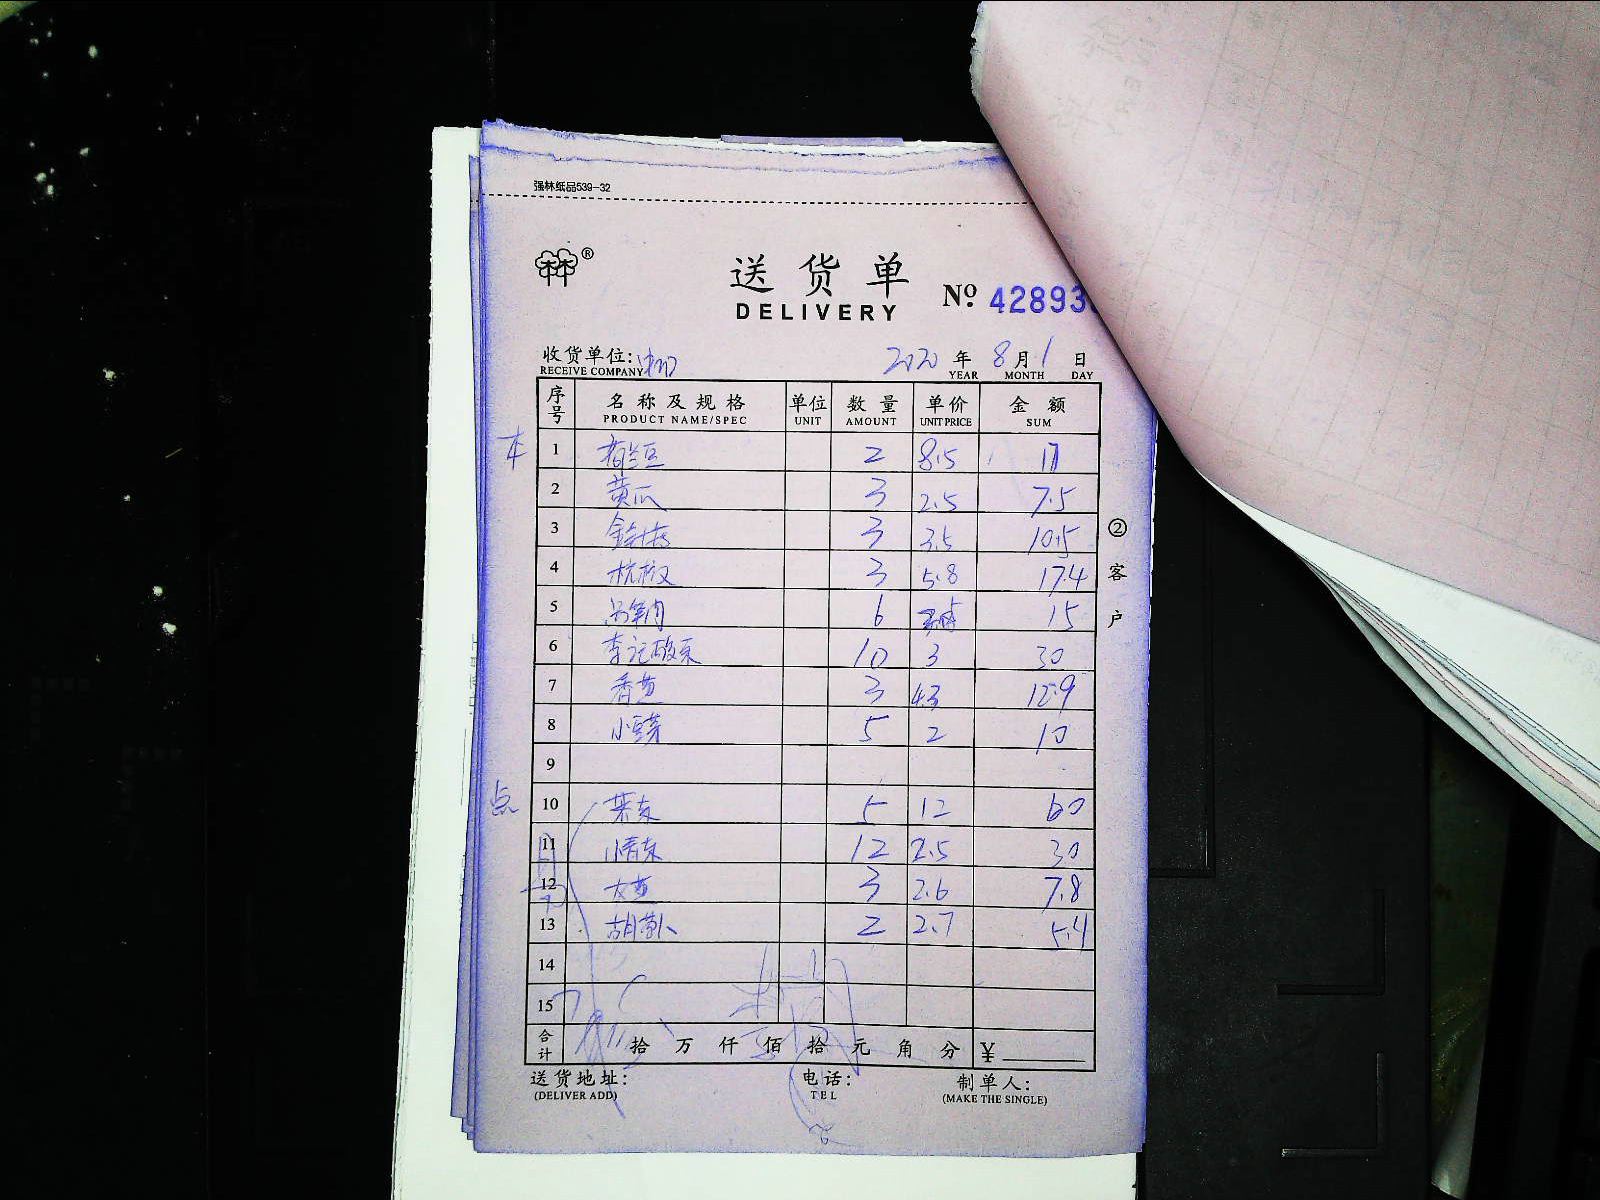 强林纸品539-32
林®
送货单
DELIVERY
Nº 42893
收货单位:
RECEIVE COMPANY
2020 年 8 月 1 日
YEAR MONTH DAY
序号 名称及规格 单位 数量 单价 金额
PRODUCT NAME/SPEC UNIT AMOUNT UNIT PRICE SUM
1 荷兰豆 2 8.5 17
2 黄瓜 3 2.5 7.5
3 3 3.5 10.5
4 杭椒 3 5.8 17.4
5 6 15
6 李记酸菜 10 3 30
7 香葱 3 4.3 12.9
8 小豆芽 5 2 10
9
点 10 5 12 60
11 12 2.5 30
12 大葱 3 2.6 7.8
13 胡萝卜 2 2.7 5.4
14
15
合计 拾 万 仟 佰 拾 元 角 分 ¥
送货地址: 电话: 制单人:
(DELIVER ADD) TEL (MAKE THE SINGLE)
②客户